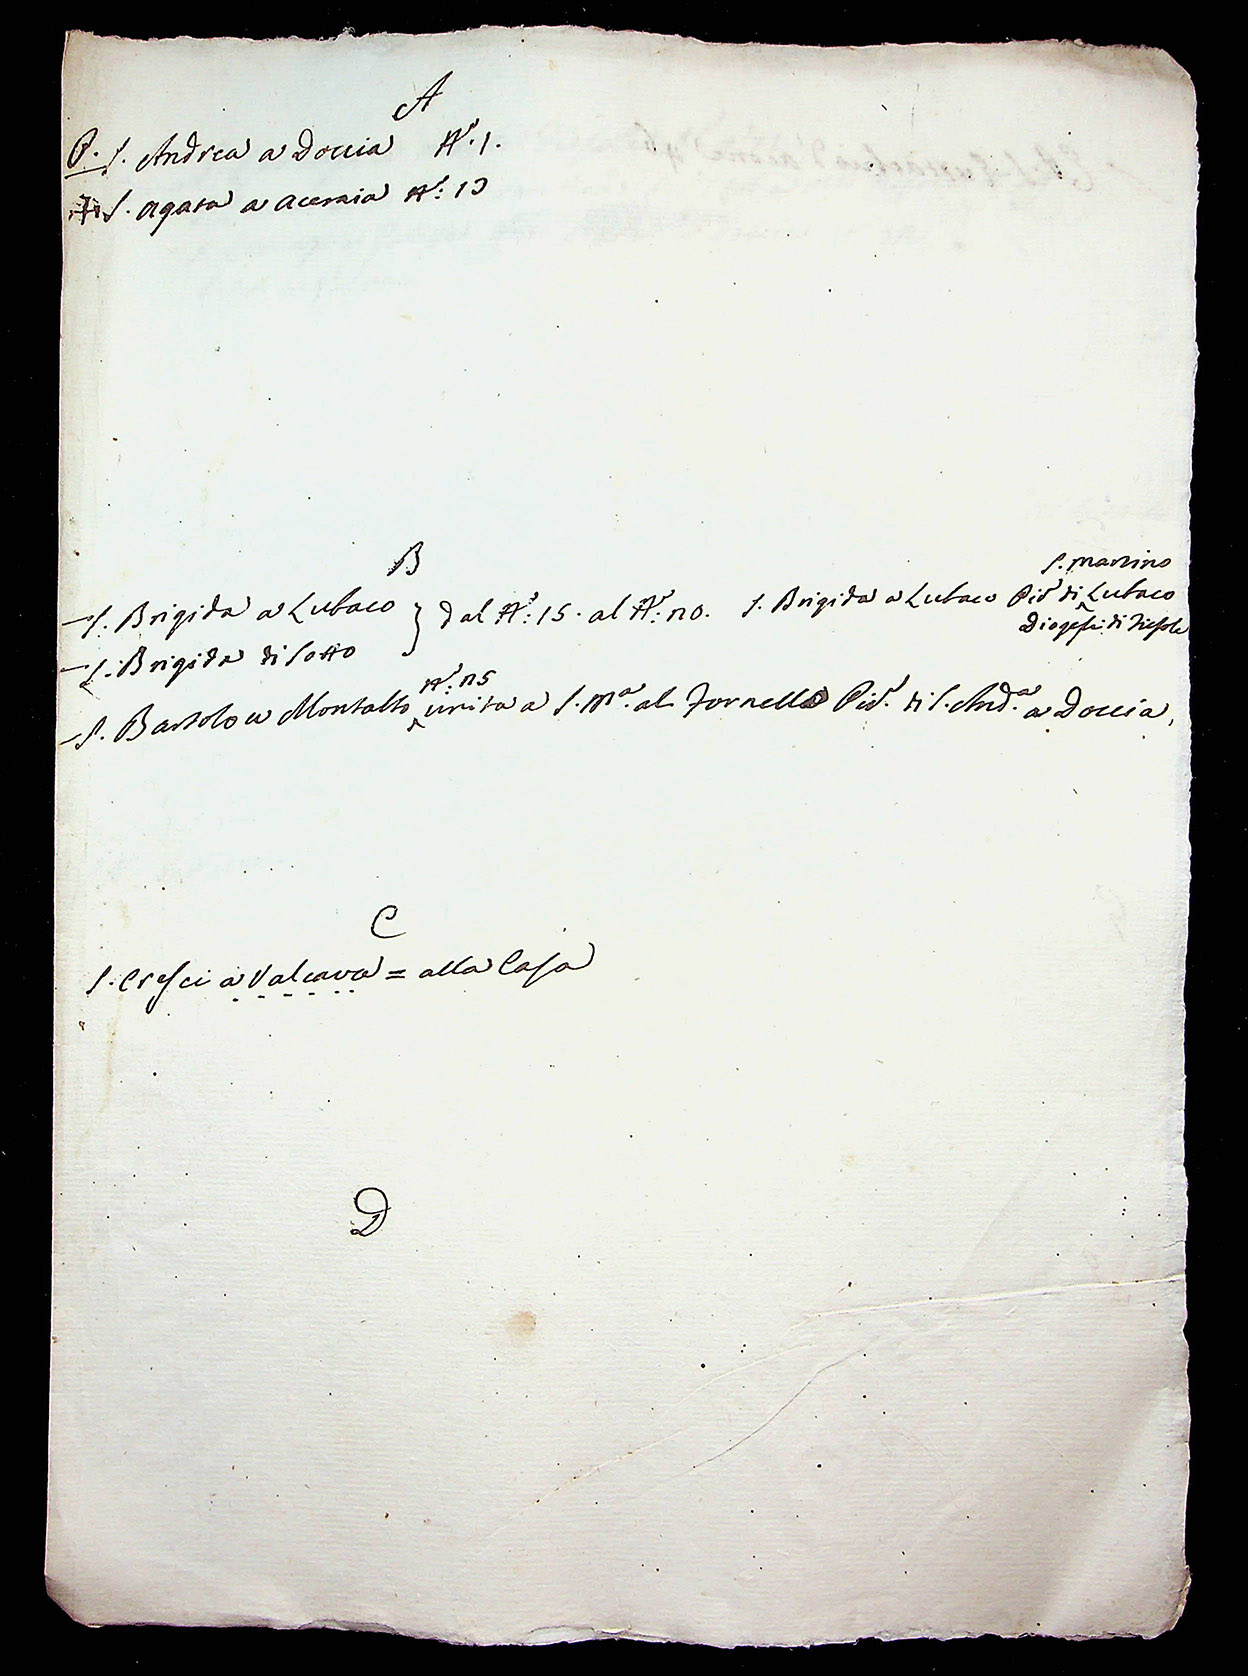 A
P. S. Andrea a Doccia N.º 1.
S. Agata a Acernia N.º: 13
B
S. Martino
S. Brigida a Lubaco } dal N.º: 15. al N.º: 20. S. Brigida a Lubaco Piv.e di Lubaco
Diogesi di Fiesole
S. Brigida di Sotto
N.º: 25
S. Bartolo a Montalto unita a S. M.a al Fornello Piv.e di S. And.a a Doccia,
C
S. Cresci a Valcava = alla Casa
D